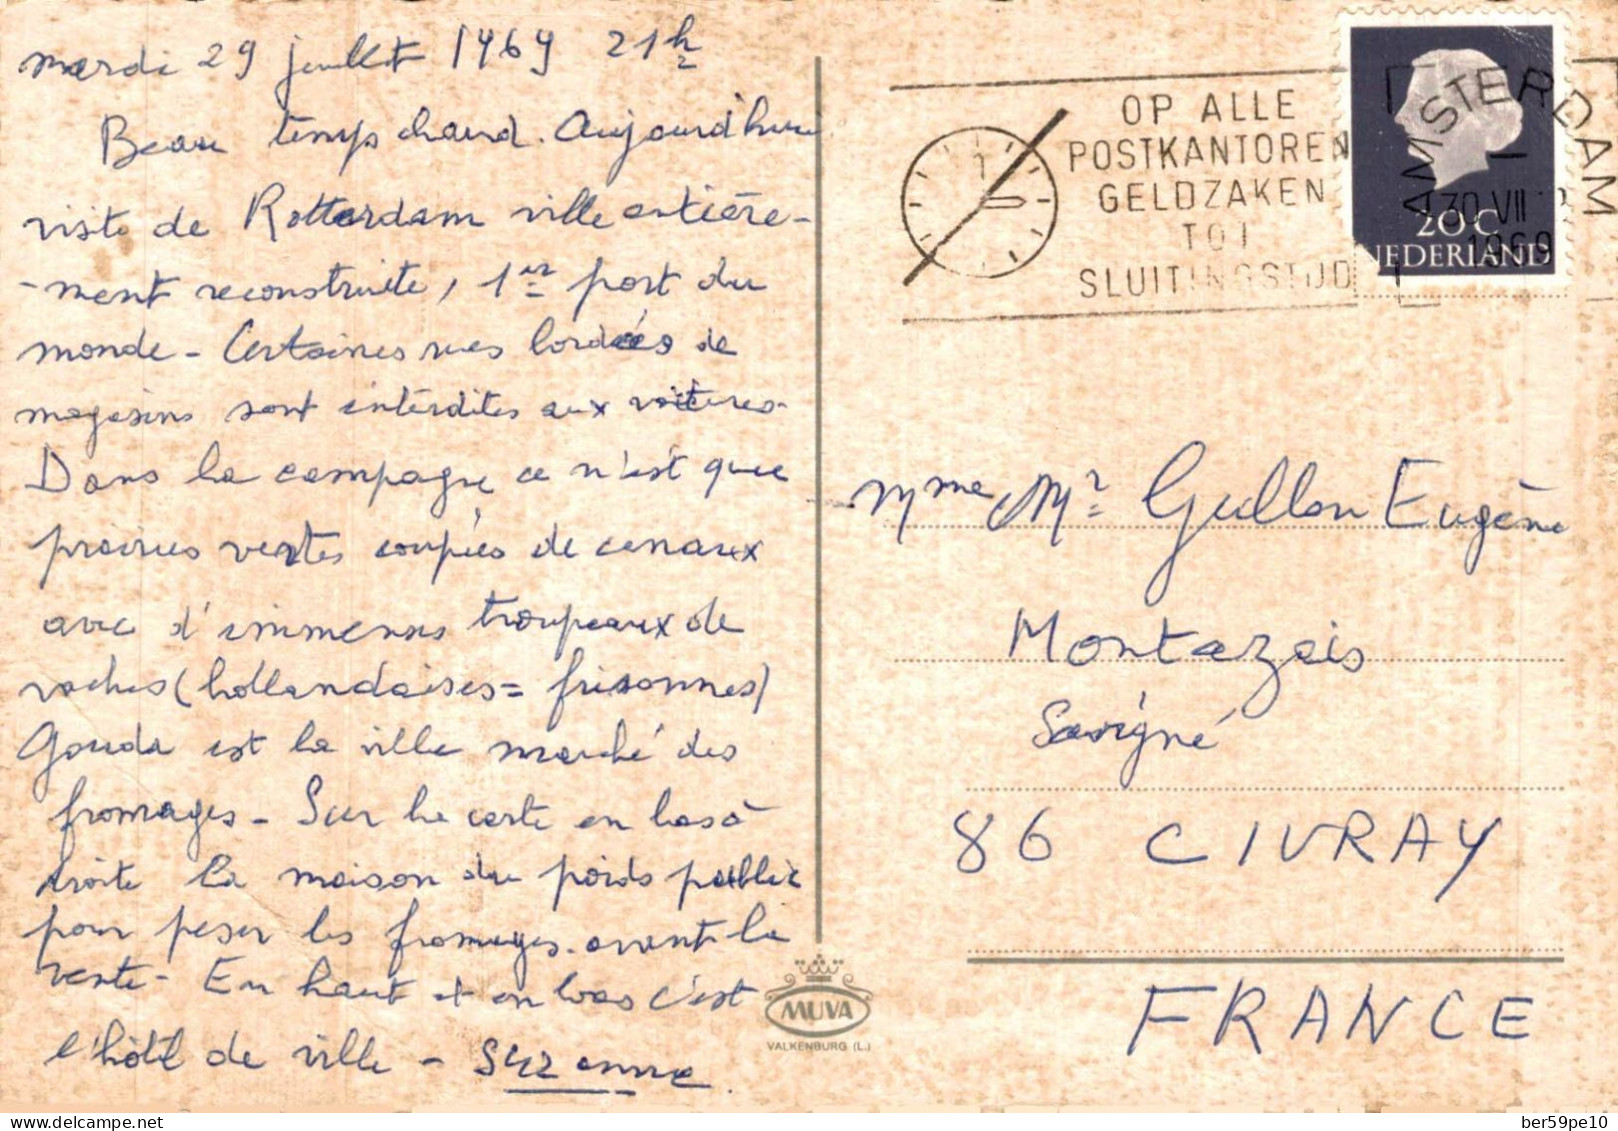 mardi 29 juillet 1969 21h
Beau temps chaud. Aujourd'hui
visite de Rotterdam ville entière-
-ment reconstruite, 1er port du
monde - Certaines rues bordées de
magasins sont interdites aux voitures.
Dans la campagne ce n'est que
prairies vertes coupées de canaux
avec d'immenses troupeaux de
vaches (hollandaises = frisonnes)
Gouda est la ville marché des
fromages - Sur la carte en bas à
droite la maison du poids public
pour peser les fromages avant la
vente - En haut et en bas c'est
l'hôtel de ville - Suzanne.
OP ALLE
POSTKANTOREN
GELDZAKEN
TOT
SLUITINGSTIJD
AMSTERDAM
30 VII
1969
20 C
NEDERLAND
Mme Mr Guillon Eugène
Montazais
Savigné
86 CIVRAY
FRANCE
MUVA
VALKENBURG (L.)
delcampe.net
ber59pe10